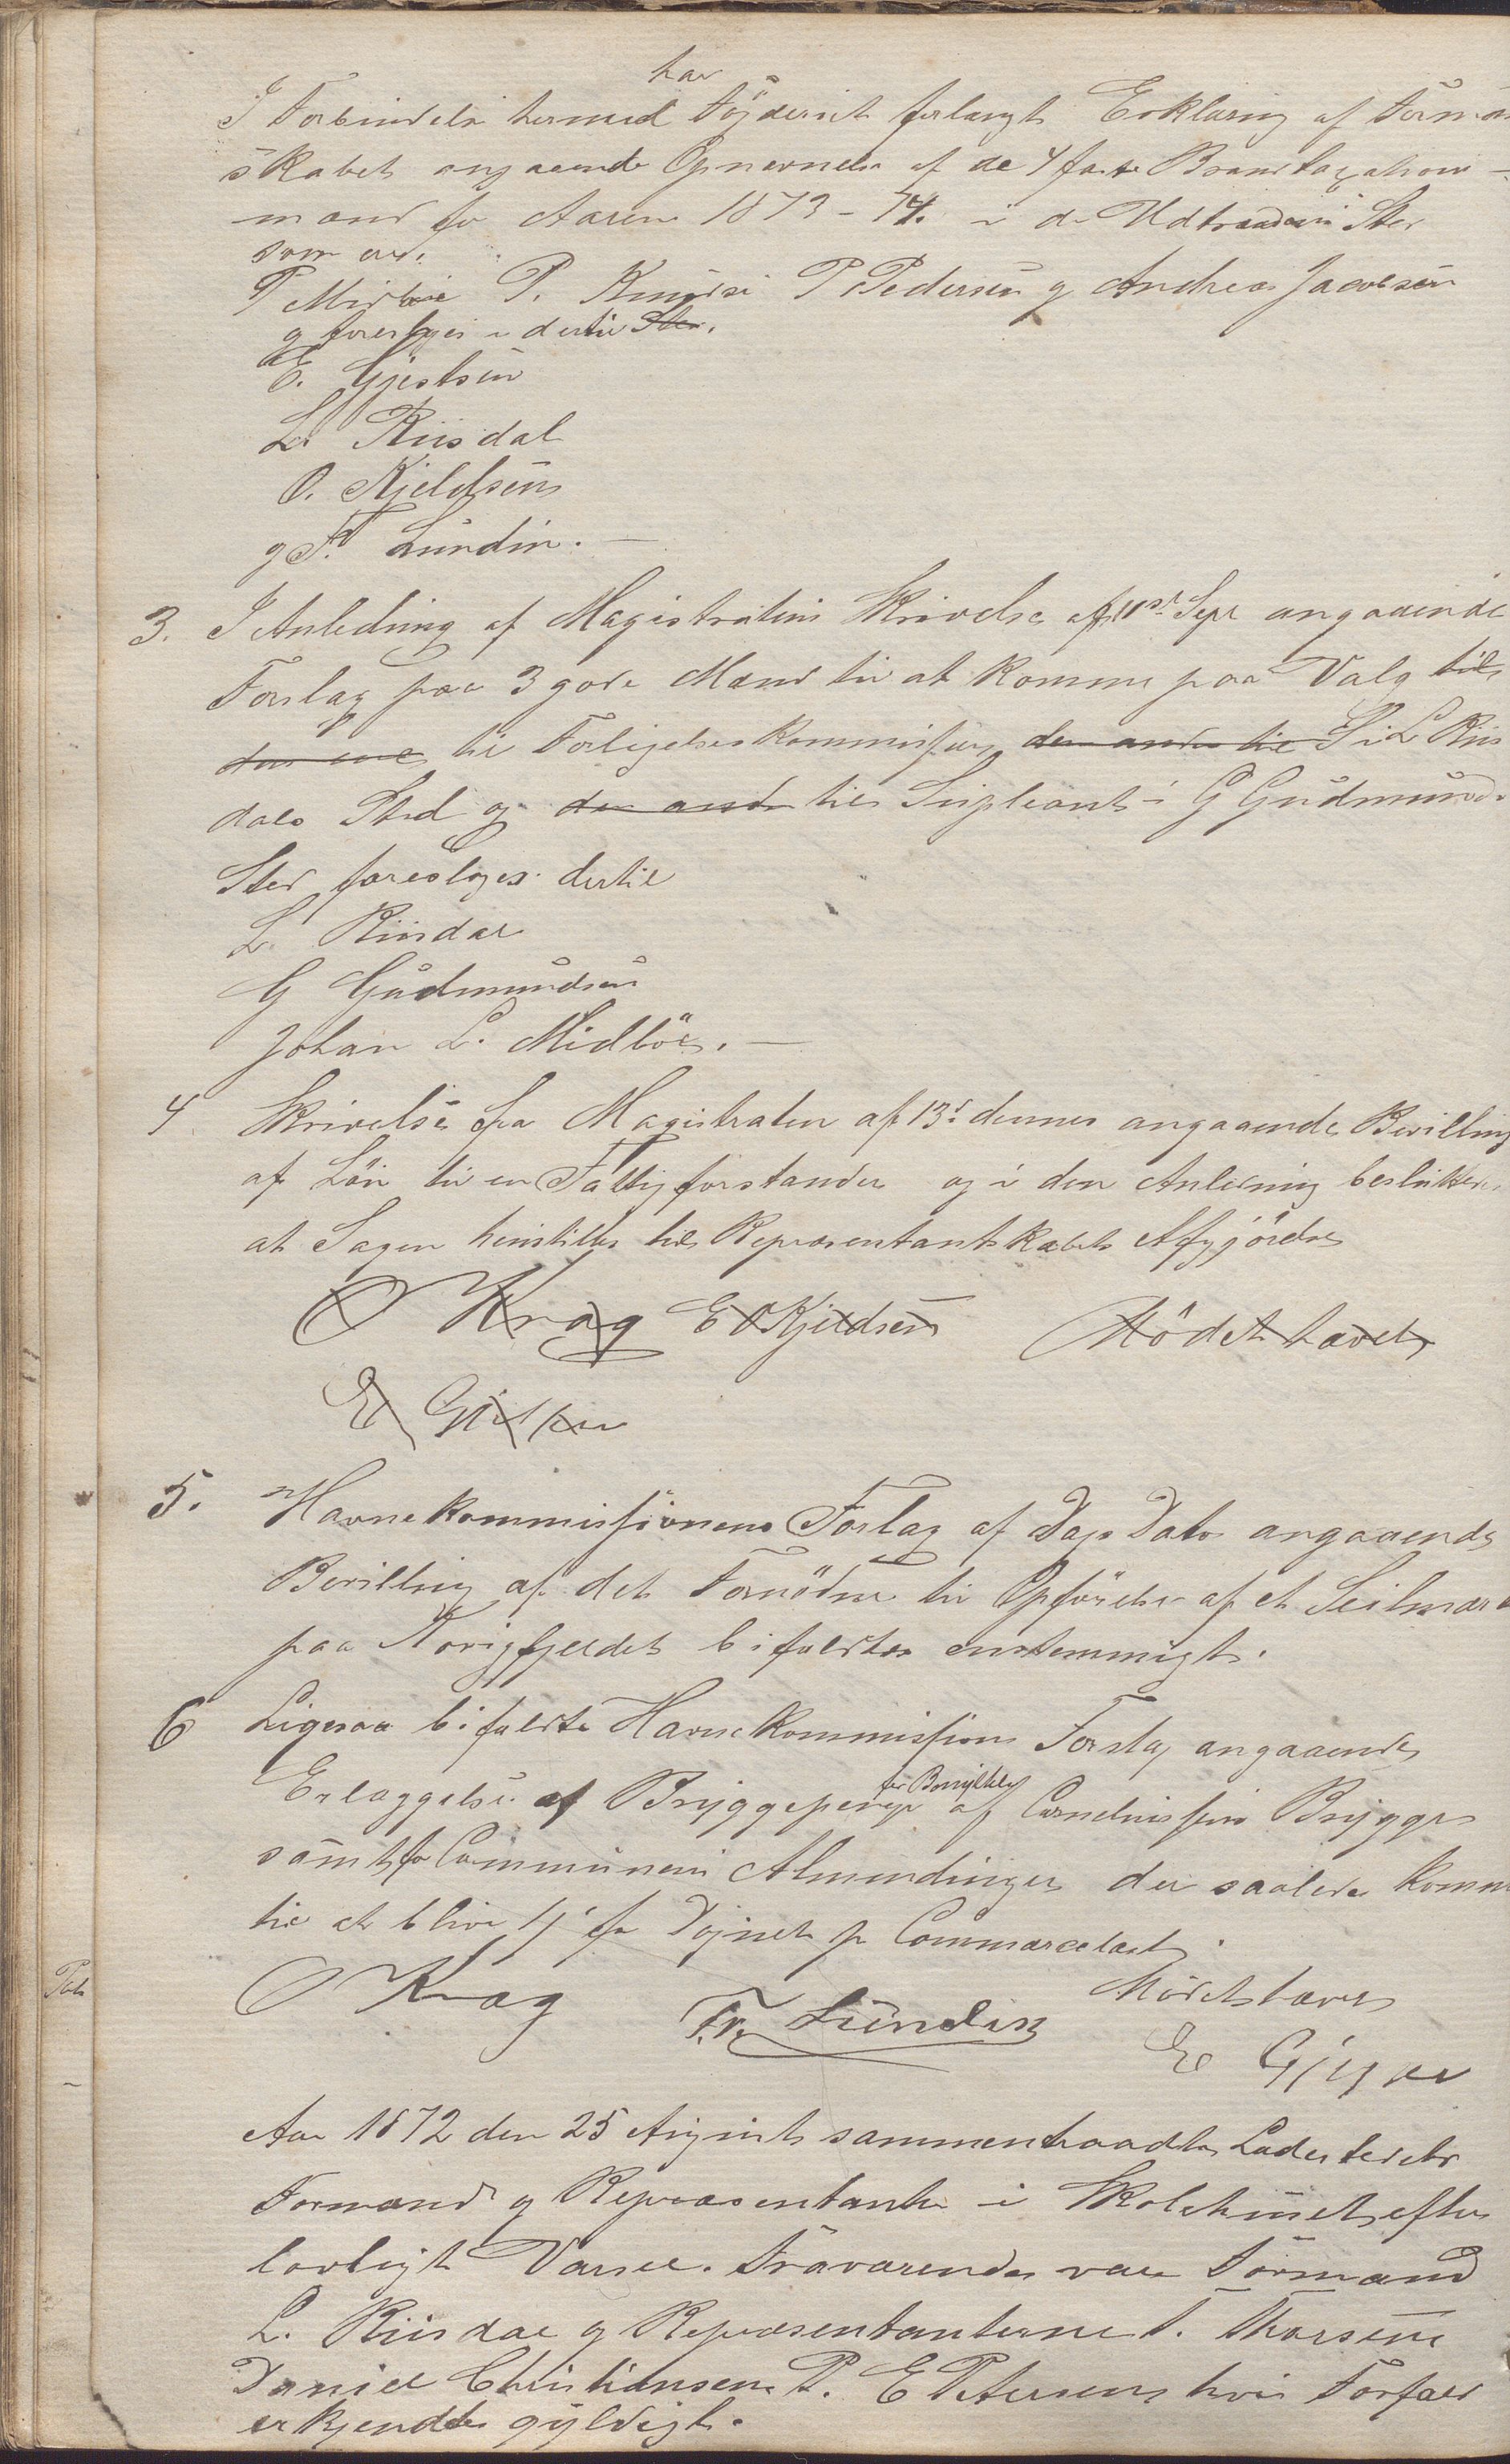 har
I Forbindelse hermed Föjderiet forlangt Erklæring af Forman
skabet angaaende Opnævnelse af de 4 faste Brandtaxations-
mænd for Aarene 1873-74. i de Udtrædendes Sted
som ere.
T Midböe P. Knudsen P Pedersen og Andreas Jacobsen
og foreslages dertil Sted.
E. Gjertsen
L. Riisdal
O. Kjeldsen
og F. Lundin. —
3. I Anledning af Magistratens Skrivelse af 11st Sept angaaende
Forslag paa 3 gode Mænd til at komme paa Valg til
den ene til Forligelseskommissær den anden til i L Riis
dals Sted og den anden til Supleant i G Gudmunds.
Sted foreslages dertil
L. Riisdal
G Gudmundsen
Johan L. Midböe. —
4 Skrivelse fra Magistraten af 13d dennes angaaende Bevilling
af Lön til en Fattigforstander og i den Anledning besluttedes
at Sagen henstilles til Repræsentantskabets Afgjörelse
O Krag E O Kjeldsen Mödet hævet
E Gjertsen
5. Havnekommissionens Forslag af Dags Dato angaaende
Bevilling af det Fornödne til Opförelse af et Seilmærke
paa fjeldet bifaldtes enstemmigt.
6 Ligesaa bifaldtes Havnekommissionens Forslag angaaende
for Benyttelse
Erlæggelse af Bryggepenge af Corneliussens Brygge
samt fra Communens Almendinger der saaledes komme
til at blive 1/ for Döjnet pr Commercelæst.
O Krag Mödet hævet
Fr. Lündin
E Gjertsen
Aar 1872 den 25 August sammentraadte Ladestedets
Formænd og Repræsentanter i Skolehuset efter
lovligt Varsel. Fraværende vare Formand
L. Riisdal og Repræsentanterne T. Thorsen
Daniel Christiansen P. E Petersen hvis Forfald
erkjendtes gyldigt.